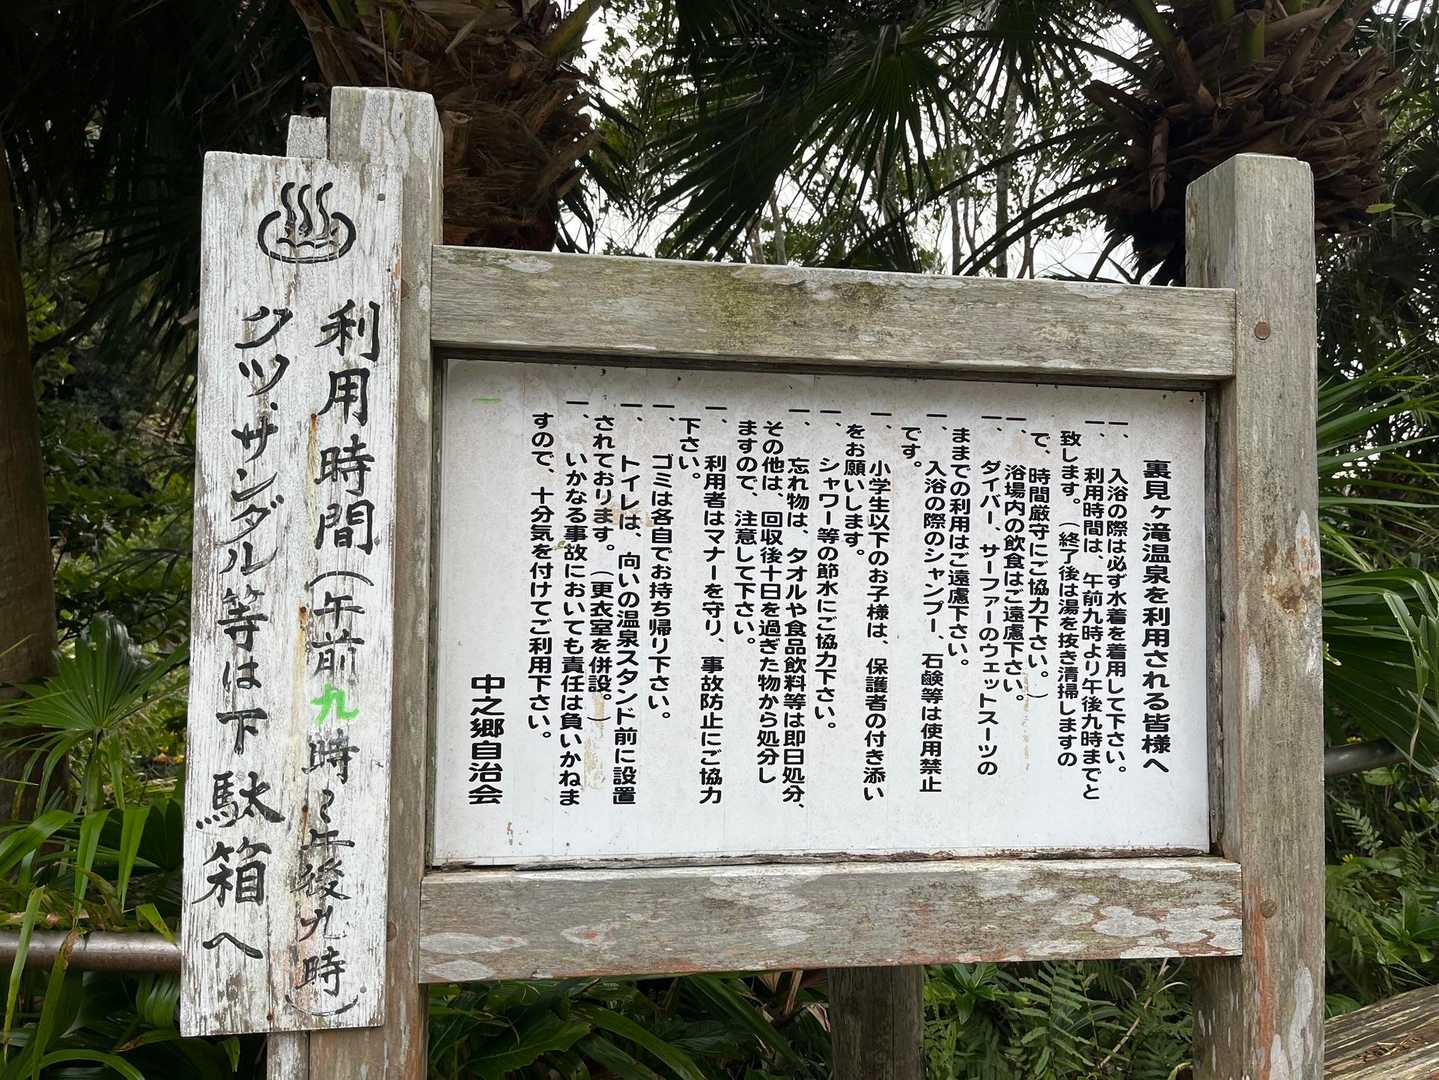 裏見ヶ滝温泉を利用される皆様へ
一、入浴の際は必ず水着を着用して下さい。
一、利用時間は、午前九時より午後九時までと
致します。（終了後は湯を抜き清掃しますの
で、時間厳守にご協力下さい。）
一、浴場内の飲食はご遠慮下さい。
一、ダイバー、サーファーのウェットスーツの
ままでの利用はご遠慮下さい。
一、入浴の際のシャンプー、石鹸等は使用禁止
です。
一、小学生以下のお子様は、保護者の付き添い
をお願いします。
一、シャワー等の節水にご協力下さい。
一、忘れ物は、タオルや食品飲料等は即日処分、
その他は、回収後十日を過ぎた物から処分し
ますので、注意して下さい。
一、利用者はマナーを守り、事故防止にご協力
下さい。
一、ゴミは各自でお持ち帰り下さい。
一、トイレは、向いの温泉スタンド前に設置
されております。（更衣室を併設。）
一、いかなる事故においても責任は負いかねま
すので、十分気を付けてご利用下さい。
中之郷自治会
利用時間（午前九時〜午後九時）
クツ、サンダル等は下駄箱へ